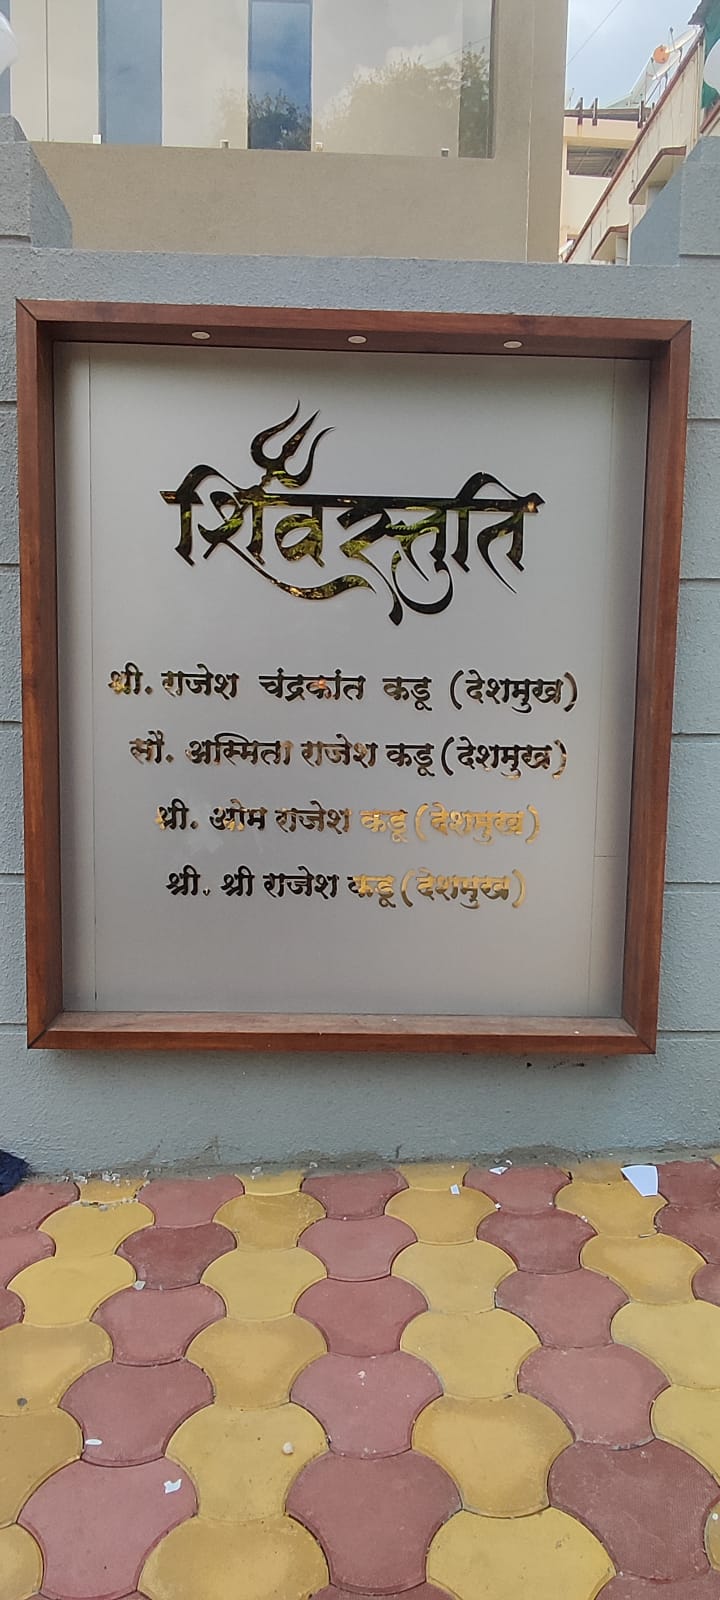 शिवस्तुति
श्री. राजेश चंद्रकांत कडू (देशमुख)
सौ. अस्मिता राजेश कडू (देशमुख)
श्री. ओम राजेश कडू (देशमुख)
श्री. श्री राजेश कडू (देशमुख)